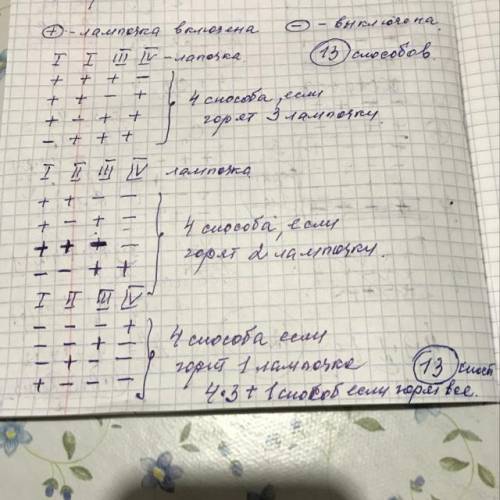 ⊕ - лампочка включена ⊖ - выключена.
I I III IV - лапочка 13 способов
+ + + -
+ + - + 4 способа, если
+ - + + горят 3 лампочки.
- + + +
I II III IV лампочка
+ + - -
+ - + - 4 способа, если
+ + + - горят 2 лампочки.
- - + +
I II III IV
- - - +
- - + - 4 способа если
- + - - горит 1 лампочка 13 спос
+ - - - 4·3 + 1 способ если горят все.